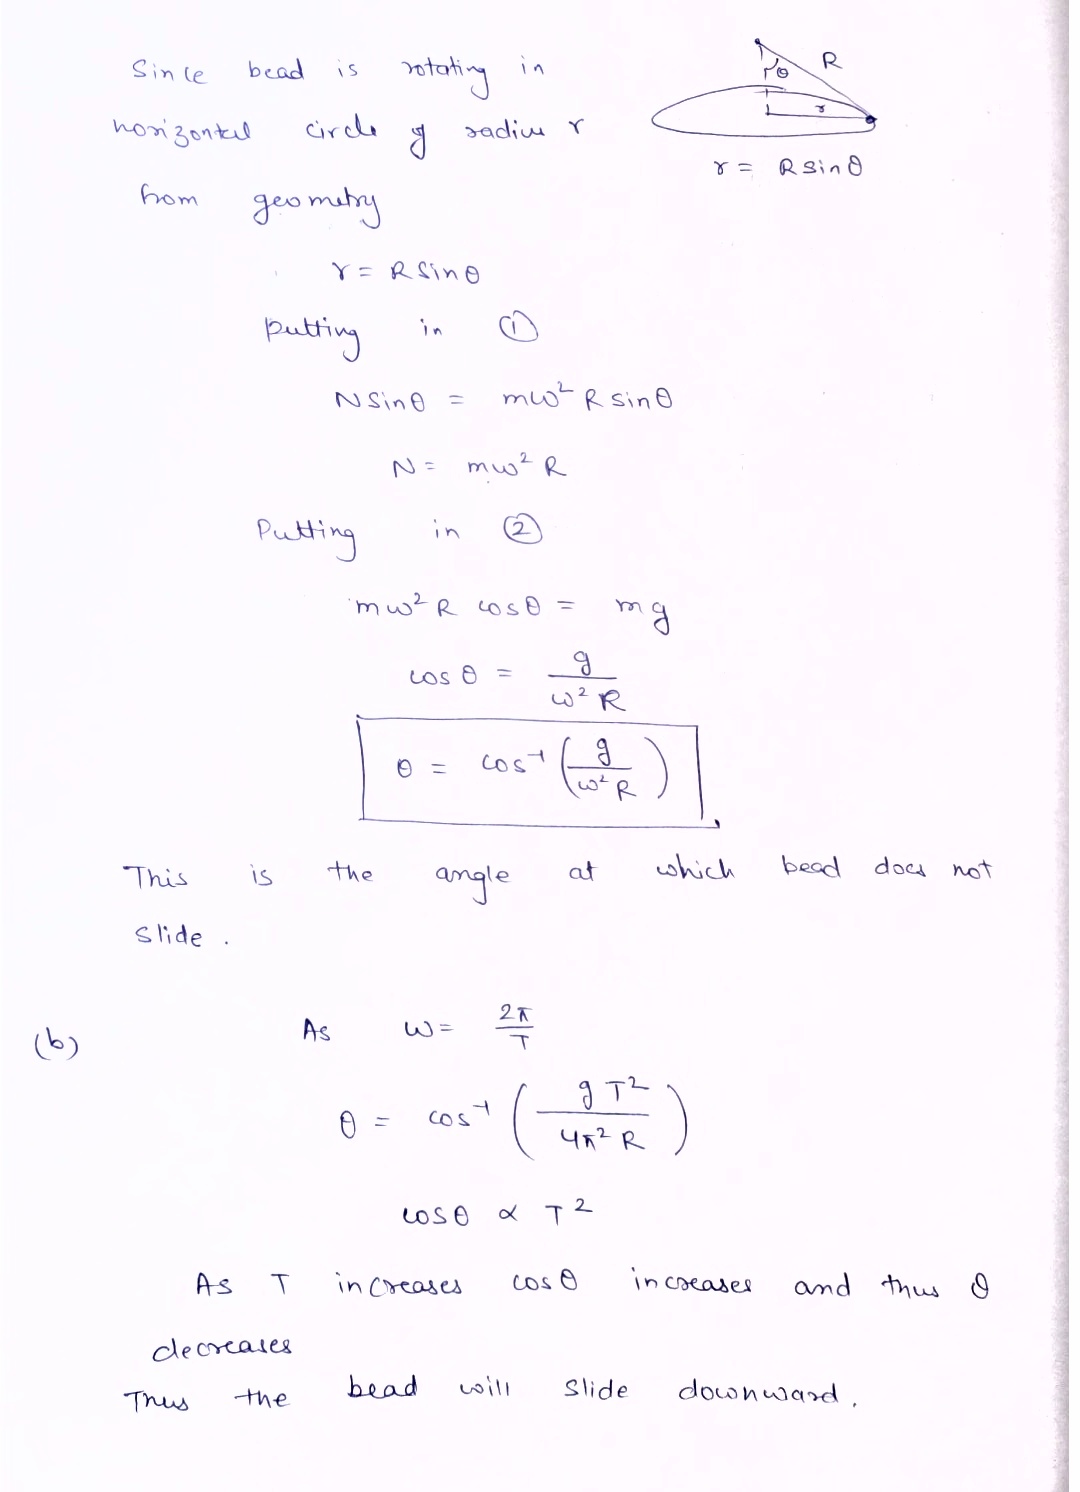 Since bead is rotating in
horizontal circle of radius r
R
θ
r
r = R sin θ
from geometry
r = R sin θ
putting in ①
N sin θ = mω² R sin θ
N = mω² R
Putting in ②
mω² R cos θ = mg
cos θ = g / ω² R
θ = cos⁻¹ (g / ω² R)
This is the angle at which bead does not
slide .
(b) As ω = 2π / T
θ = cos⁻¹ (g T² / 4π² R)
cos θ ∝ T²
As T increases cos θ increases and thus θ
decreases
Thus the bead will slide downward .